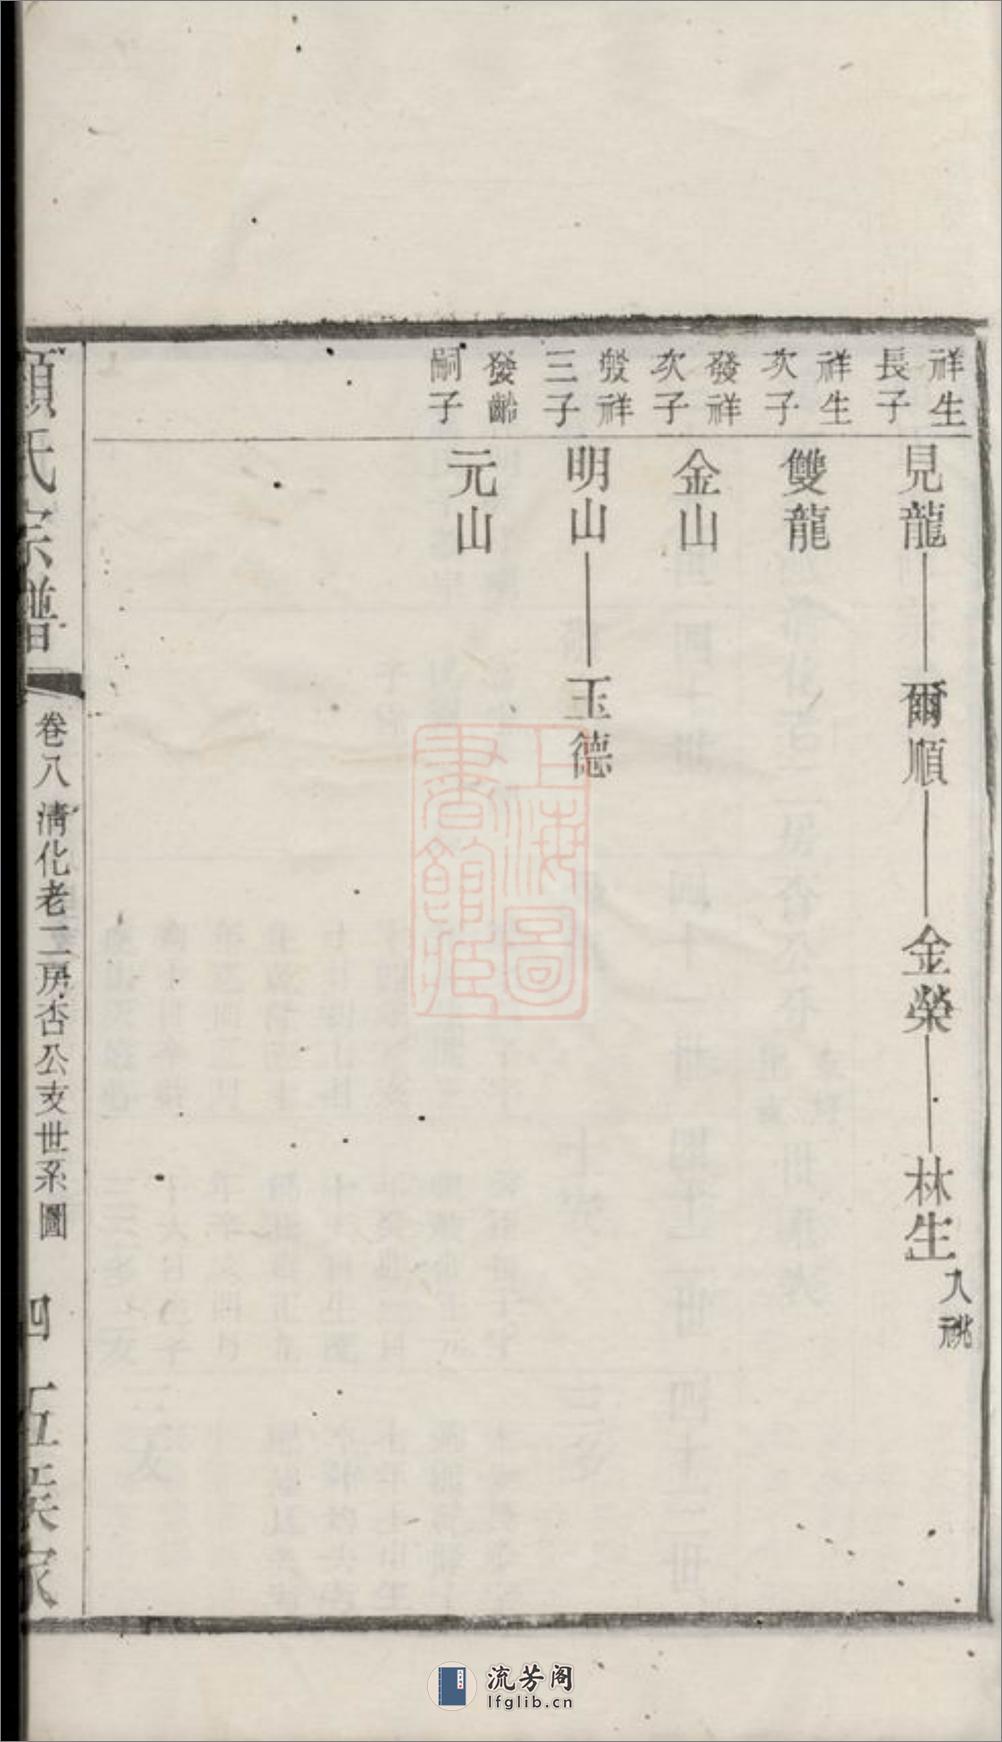 祥生
長子
見龍 爾順 金榮 林生
入祧
祥生
次子
雙龍
發祥
次子
金山
發祥
三子
明山 玉德
發齡
嗣子
元山
顧氏宗譜
卷八 清化老二房杏公支世系圖
四
上海圖書館藏
流芳阁
lfglib.cn